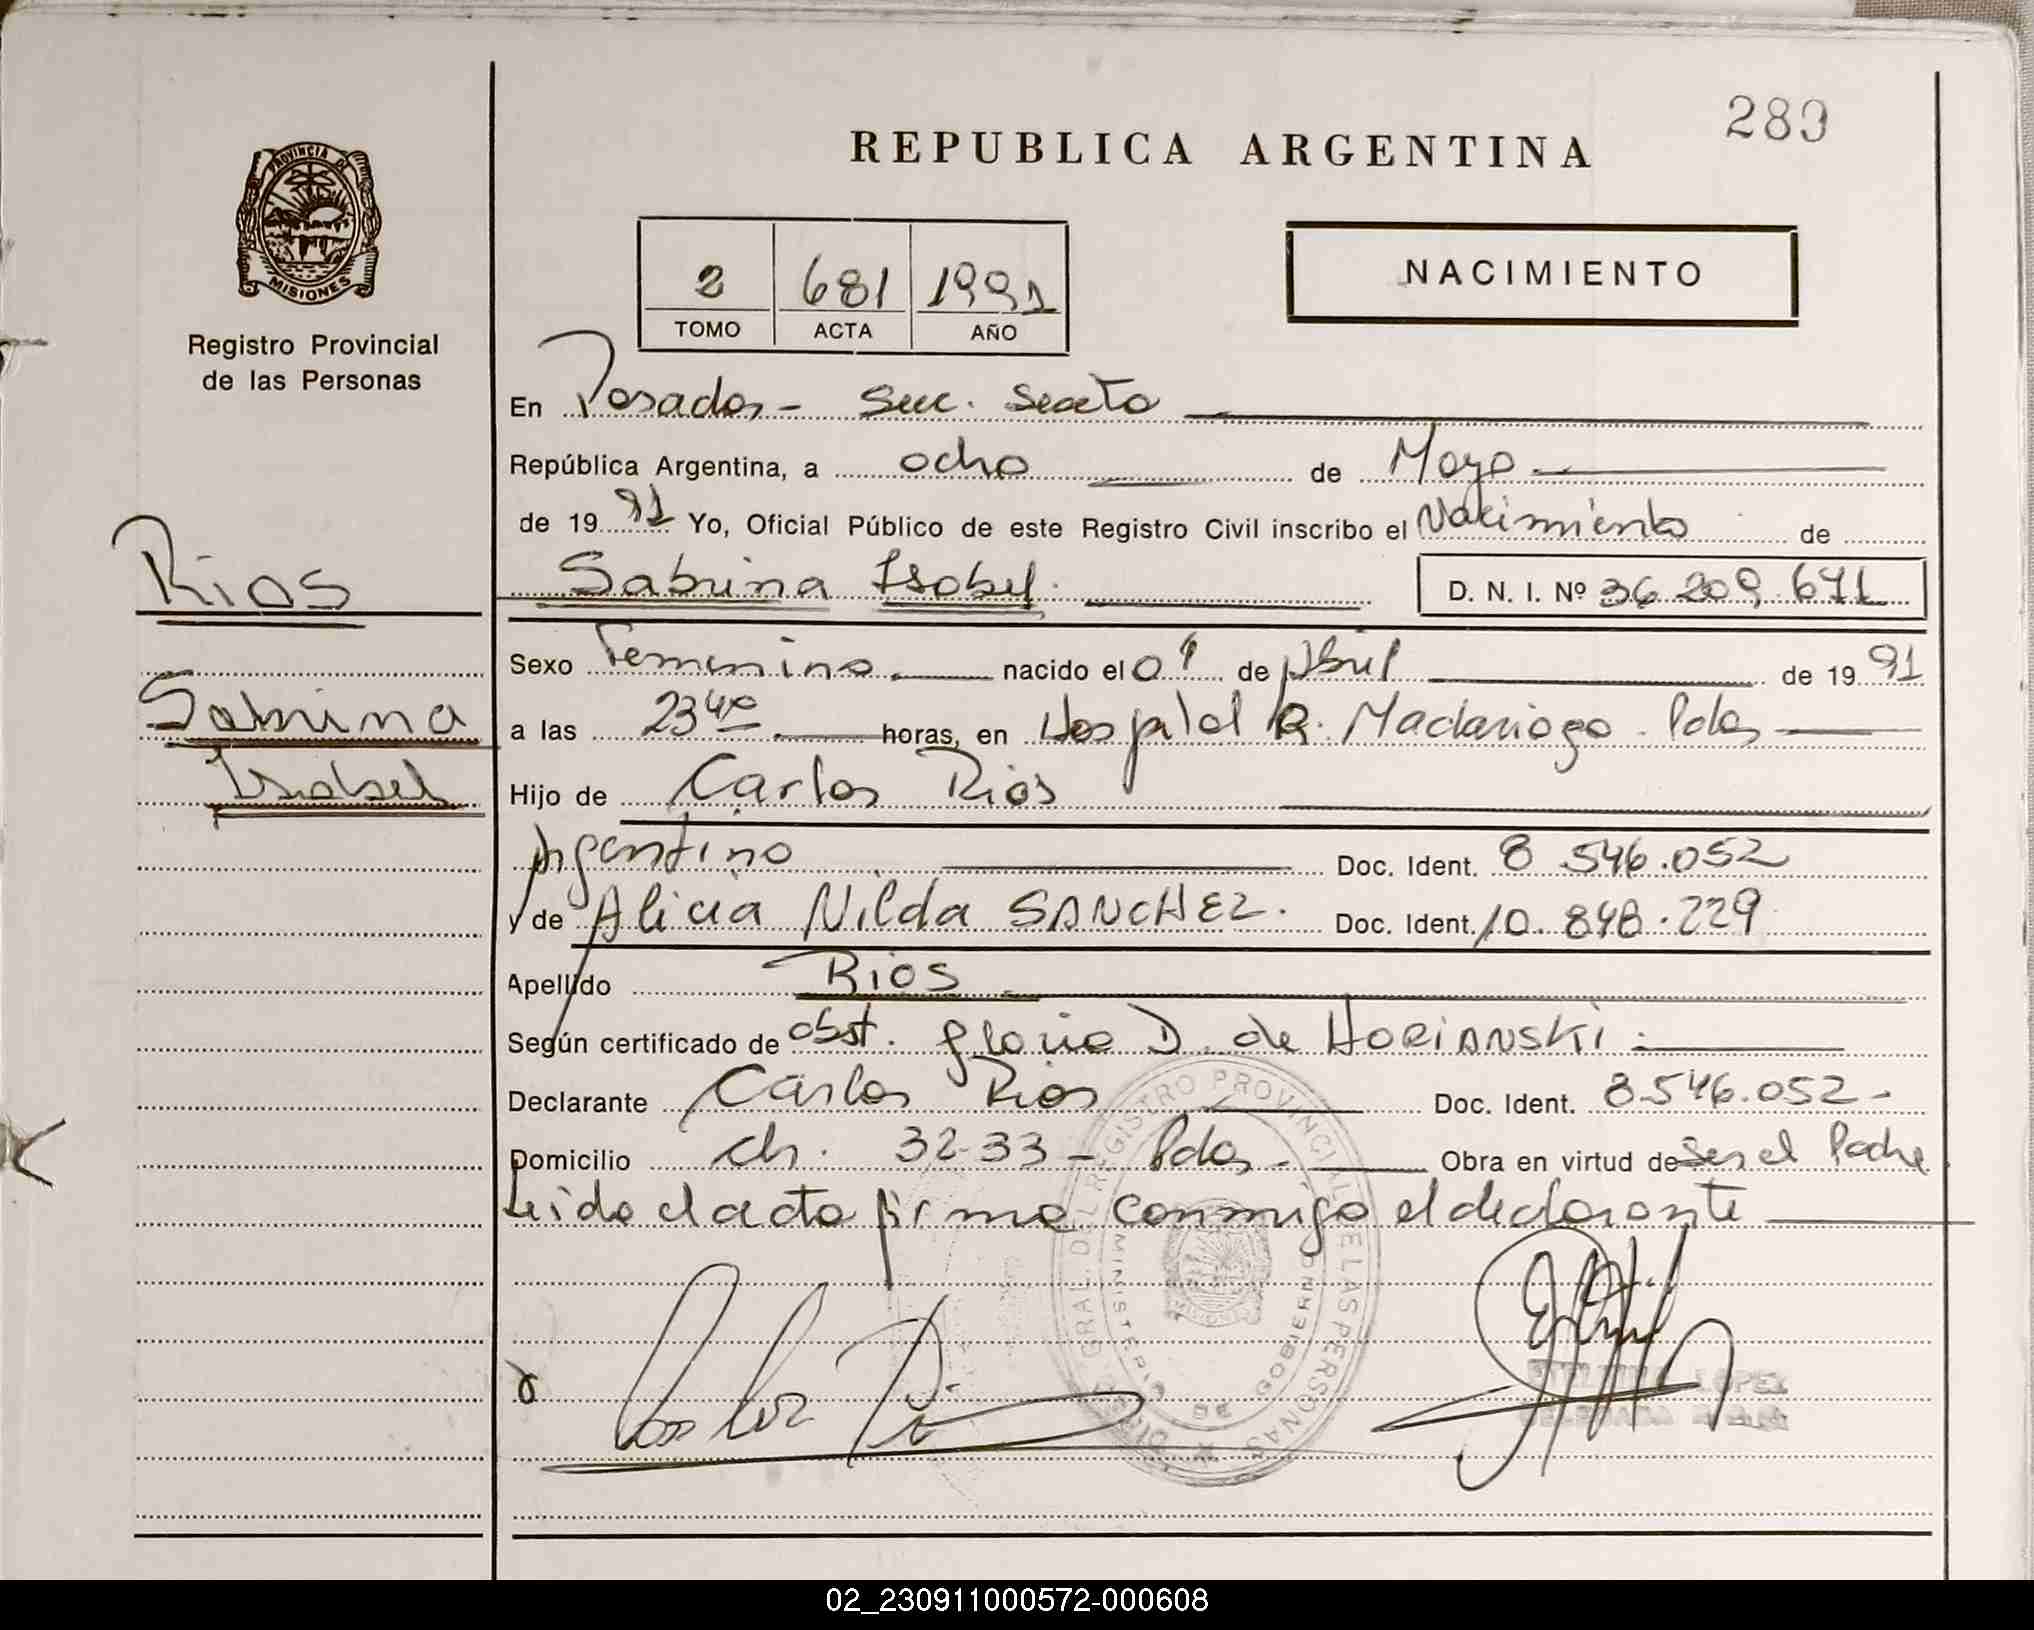 289
REPUBLICA ARGENTINA
PROVINCIA DE MISIONES
Registro Provincial
de las Personas
2 681 1991
TOMO ACTA AÑO
NACIMIENTO
En Posadas - Secc. Sexta
República Argentina, a ocho de Mayo
de 1991 Yo, Oficial Público de este Registro Civil inscribo el Nacimiento de
Sabrina Isabel. D. N. I. Nº 36.209.671
Rios
Sabrina
Isabel
Sexo Femenino nacido el de Abril de 1991
a las 23 40 horas, en Hospital R. Madariaga - Pdas
Hijo de Carlos Rios
Argentino Doc. Ident. 8.546.052
y de Alicia Nilda SANCHEZ. Doc. Ident. 10.848.229
Apellido Rios
Según certificado de obst. Gloria D. de HORIANSKI
Declarante Carlos Rios Doc. Ident. 8.546.052-
Domicilio ch. 32-33 - Pdas - Obra en virtud de ser el Padre
Leida el acta firma conmigo el declarante
DIREC. GRAL. DEL REGISTRO PROVINCIAL DE LAS PERSONAS
MINISTERIO DE GOBIERNO
MISIONES
LOPEZ
02_230911000572-000608